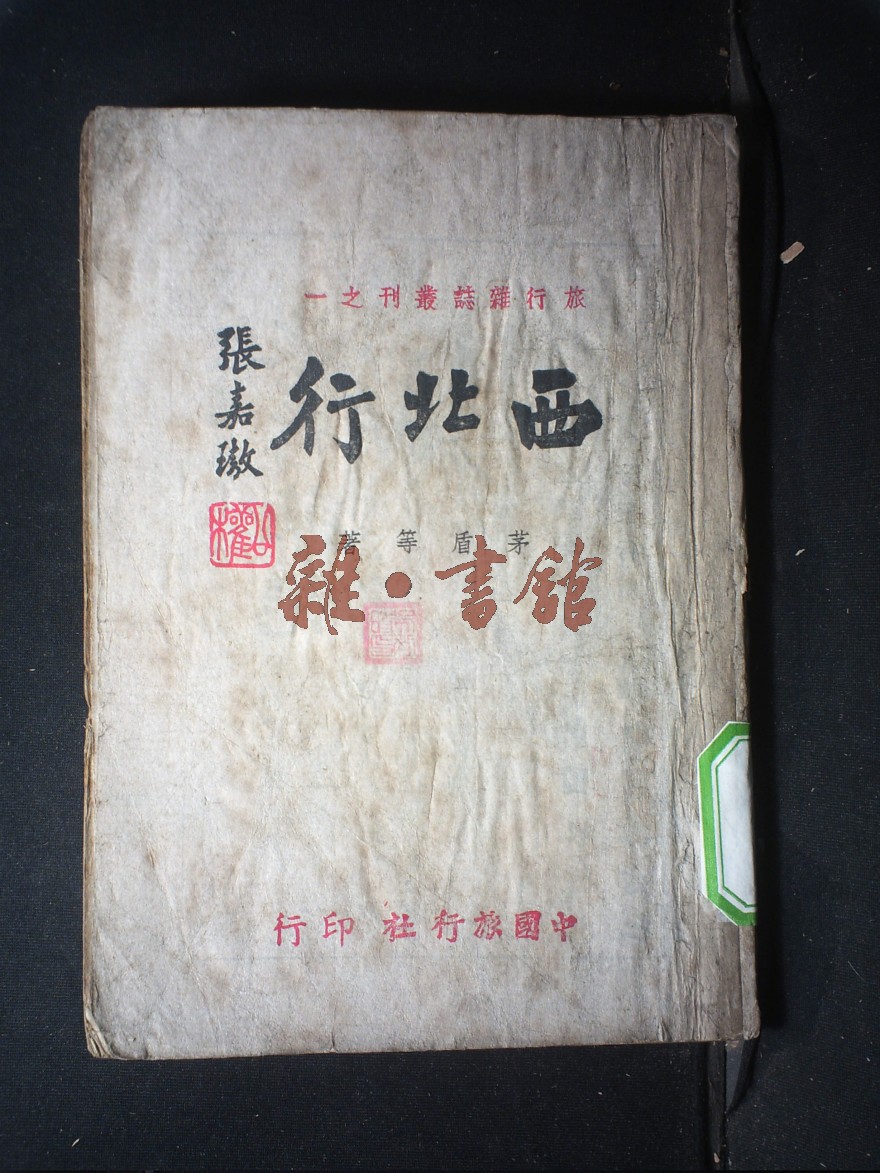 旅行雜誌叢刊之一
西北行
張嘉璈
茅盾等著
雜·書舘
中國旅行社印行